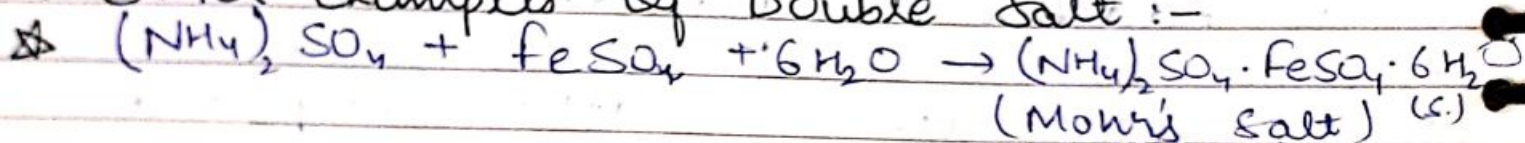 Examples of Double Salt :-
☆ (NH₄)₂ SO₄ + FeSO₄ + 6H₂O → (NH₄)₂SO₄·FeSO₄·6H₂O
(Mohr's Salt) (s.)